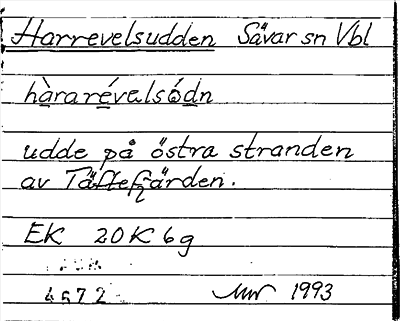 Harrevelsudden Sävar sn Vbl
hàrarévalsódn
udde på östra stranden
av Täftefjärden.
EK 20K 6g
4572 1993